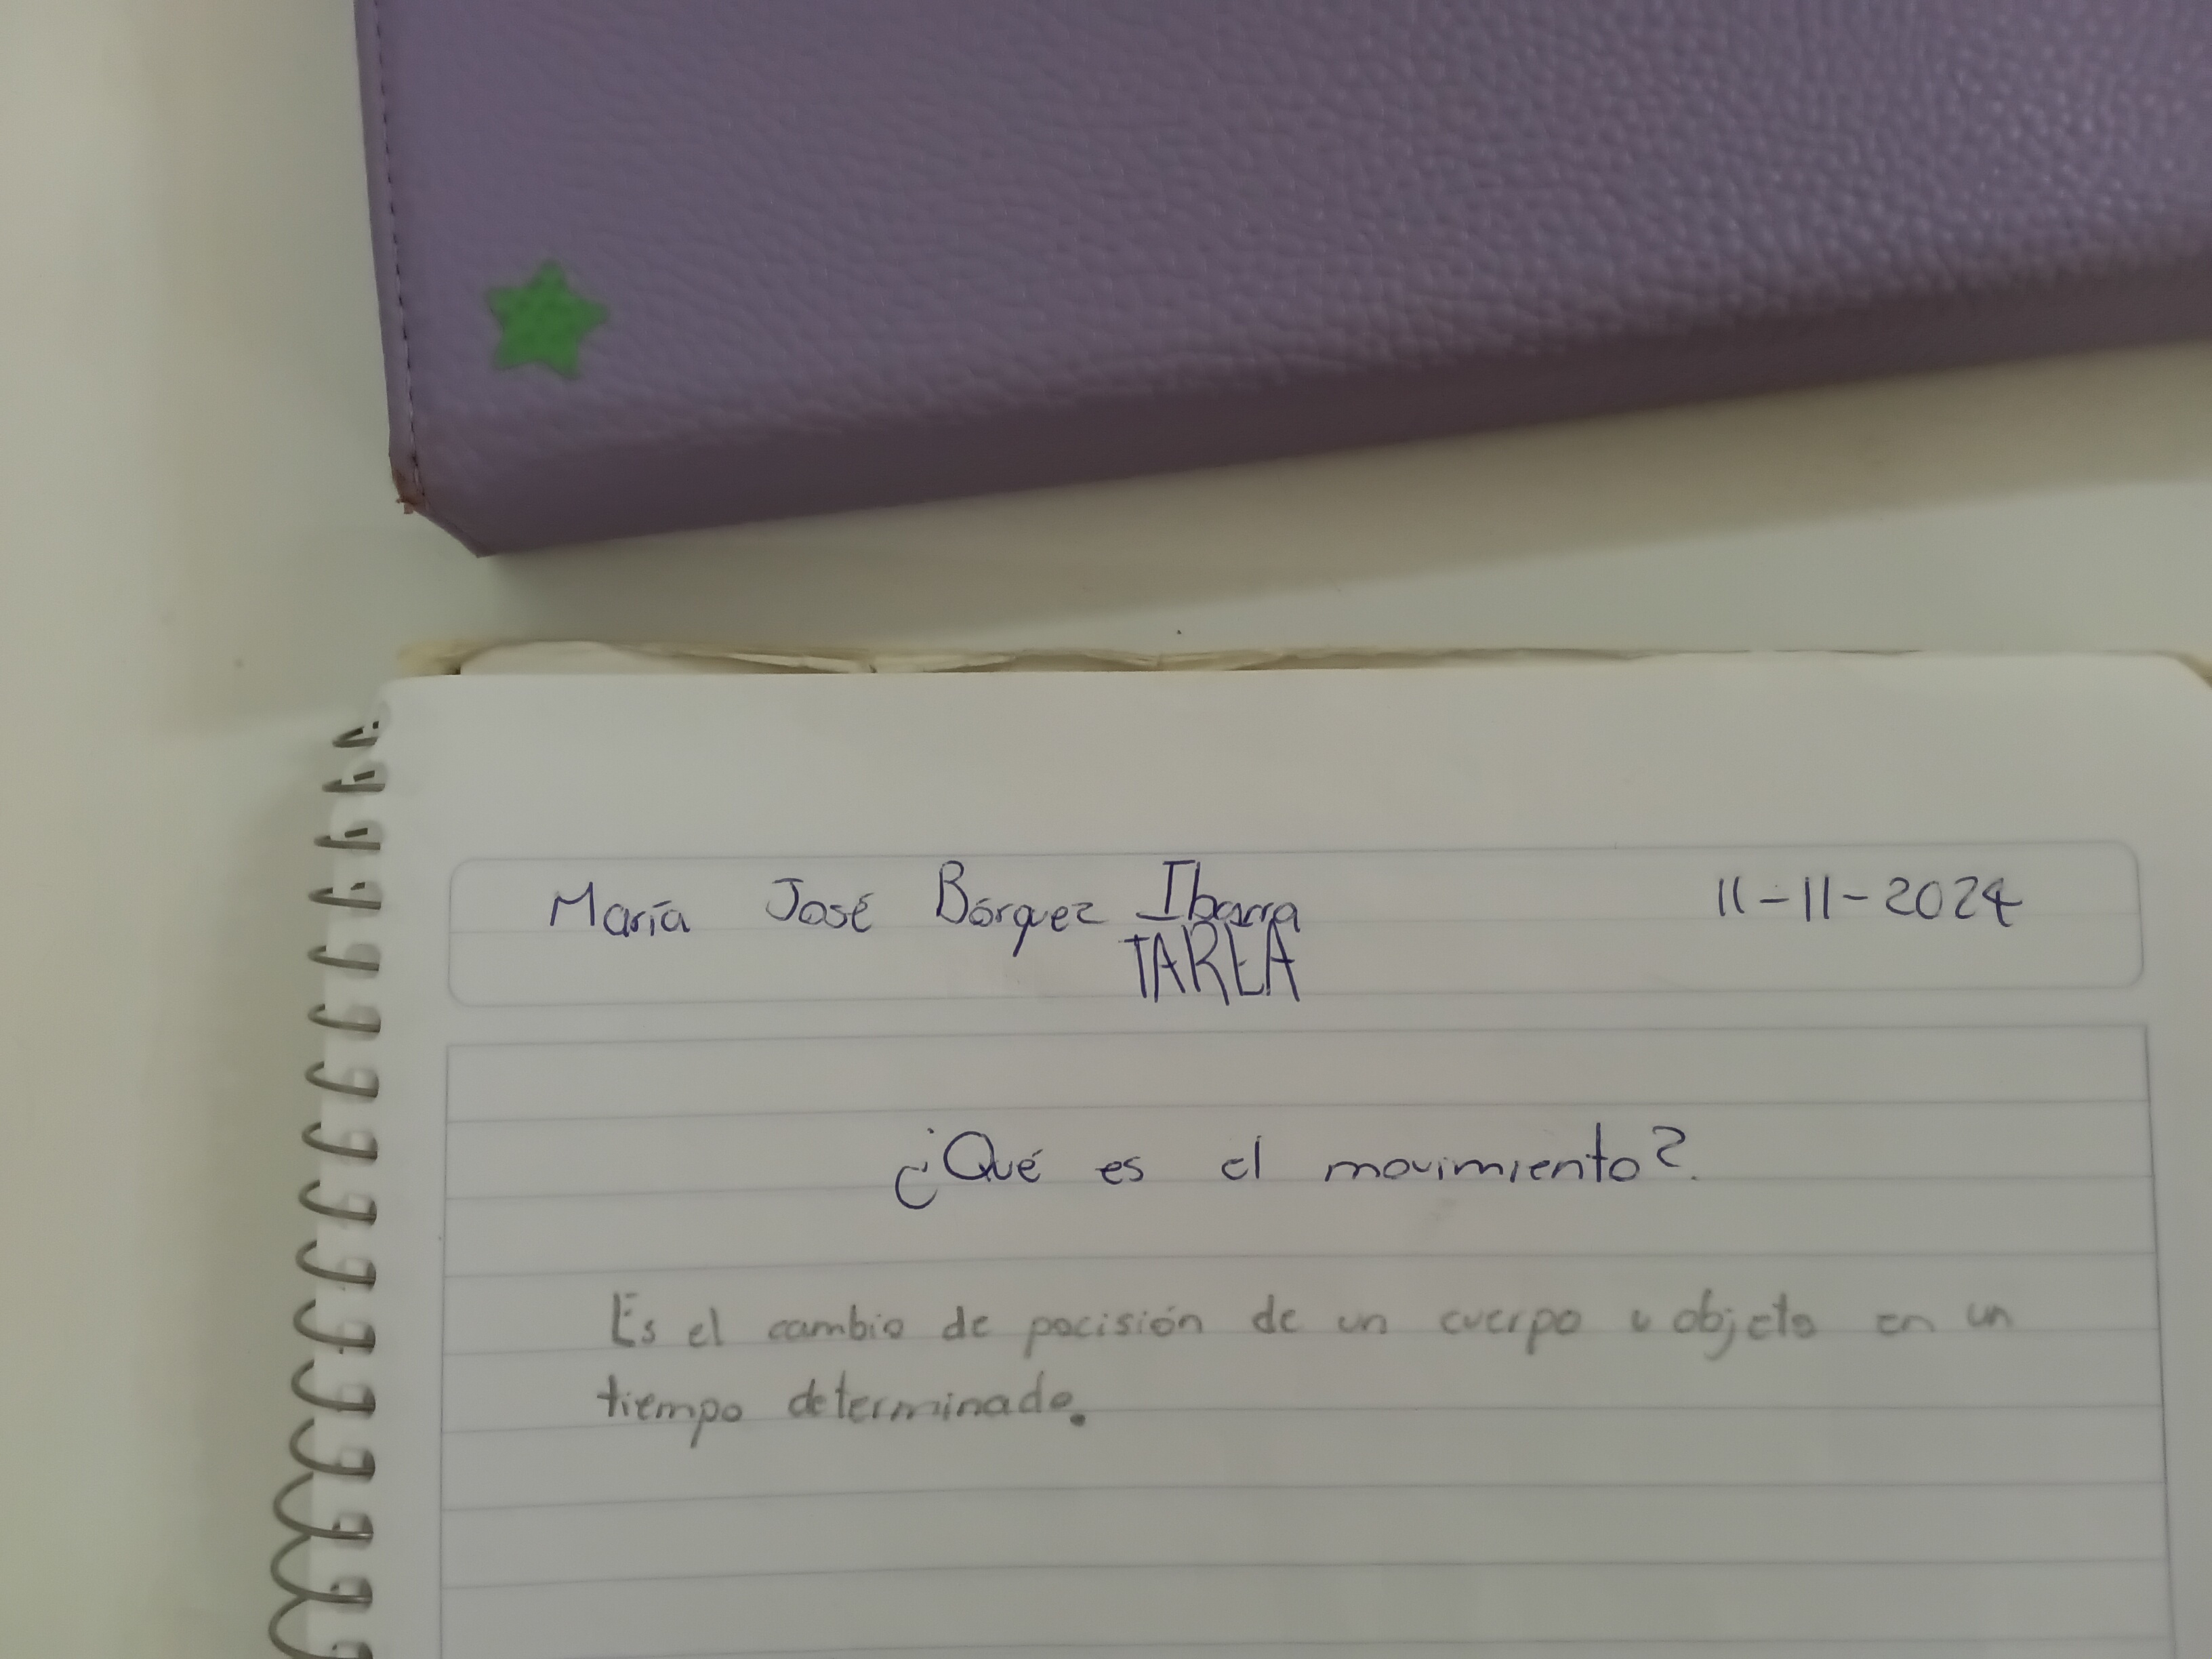 María José Bórquez Ibarra 11-11-2024
TAREA
¿Qué es el movimiento?.
Es el cambio de pocisión de un cuerpo u objeto en un
tiempo determinado.